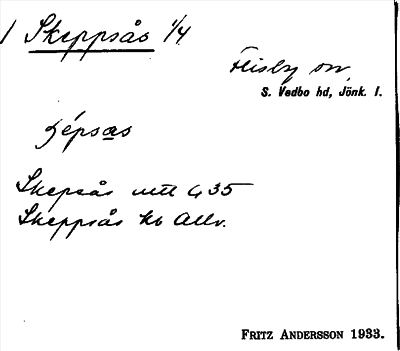 1 Skeppsås 1/4
Flisby sn,
S. Vedbo hd, Jönk. l.
Skepsås 35
Skeppsås kb Allv.
FRITZ ANDERSSON 1933.